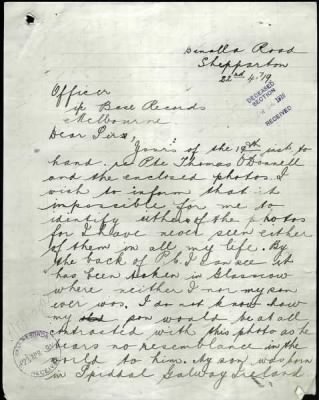 Benalla Road
Shepparton
22nd 4/19
DECEASED
SECTION
1919
RECEIVED
Officer
i/c Base Records
Melbourne
Dear Sir,
Yours of the 19th inst to
hand. re Pte Thomas O'Donnell
and the enclosed photos. I
wish to inform that it
impossible for me to
identify either of the photos
for I have never seen either
of them in all my life. By
the back of P.C I can see it
has been taken in Glasgow
where neither I nor my son
ever was. I do not know how
my son would be at all
with this photo as he
bears no resemblance in the
world to him. My son was born
in Spiddal Galway Ireland